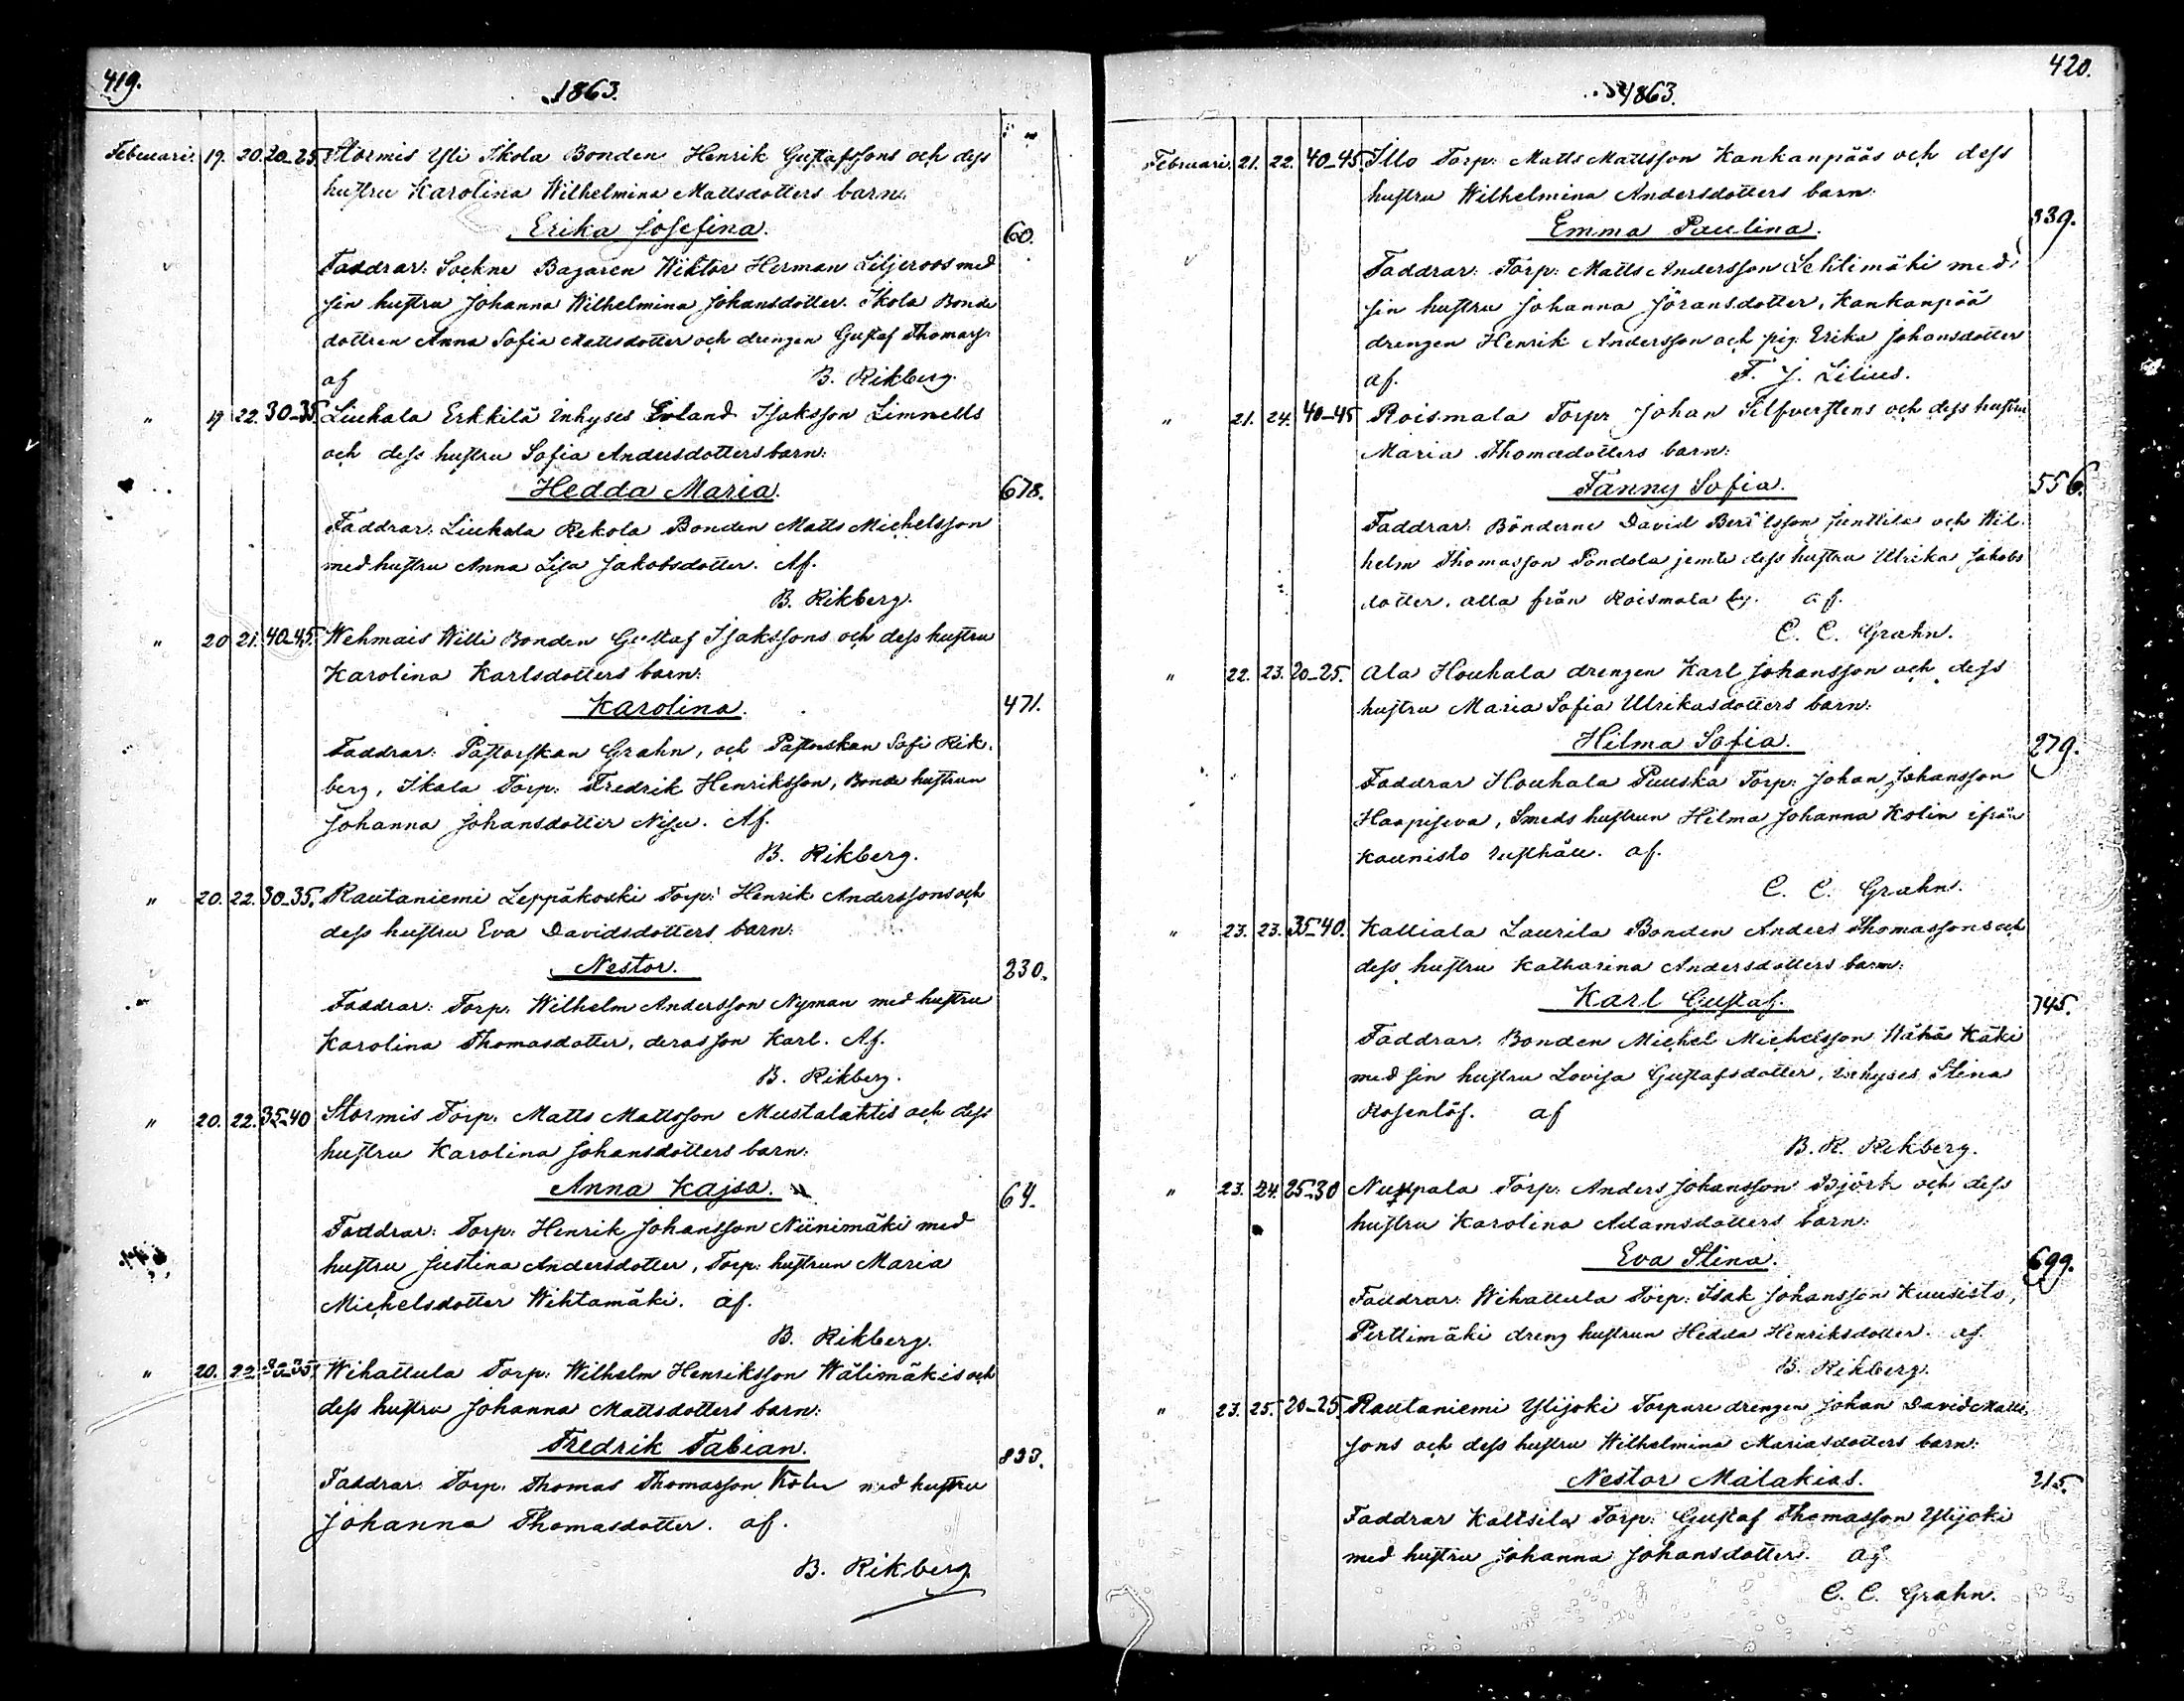 419.
1863.
Februari. 19. 20. 20-25. Stormis Yli Ikola Bonden Henrik Gustafssons och dess
hustru Karolina Wilhelmina Mattsdotters barn:
Erika Josefina. 60.
Faddrar: Sockne Bagaren Wiktor Herman Liljeroos med
sin hustru Johanna Wilhelmina Johansdotter. Ikola Bonde
dottren Anna Sofia Mattsdotter och drengen Gustaf Thomass.
af B. Rikberg.
" 19 22. 30-35. Liuhala Erkkilä Inhyses Erland Isaksson Limnells
och dess hustru Sofia Andersdotters barn:
Hedda Maria. 678.
Faddrar: Liuhala Rekola Bonden Matts Michelsson
med hustru Anna Lisa Jakobsdotter. Af.
B. Rikberg.
" 20 21. 40-45. Wehmais Willi Bonden Gustaf Isakssons och dess hustru
Karolina Karlsdotters barn:
Karolina. 471.
Faddrar: Pastorskan Grahn, och Pastorskan Sofi Rik-
berg, Ikala Torp: Fredrik Henriksson, Bonde hustrun
Johanna Johansdotter Nisu. Af.
B. Rikberg.
" 20. 22. 30-35. Rautaniemi Leppäkoski Torp: Henrik Anderssons och
dess hustru Eva Davidsdotters barn:
Nestor. 230.
Faddrar: Torp: Wilhelm Andersson Nyman med hustru
Karolina Thomasdotter, deras son Karl. Af.
B. Rikberg.
" 20. 22. 35-40 Stormis Torp: Matts Mattsson Mustalahtis och dess
hustru Karolina Johansdotters barn:
Anna Kajsa. 64.
Faddrar: Torp: Henrik Johansson Niinimäki med
hustru Justina Andersdotter, Torp: hustrun Maria
Michelsdotter Wihtamäki. af.
B. Rikberg.
" 20. 22. 30-35. Wihattula Torp: Wilhelm Henriksson Wälimäkis och
dess hustru Johanna Mattsdotters barn:
Fredrik Fabian. 833.
Faddrar: Torp: Thomas Thomasson med hustru
Johanna Thomasdotter. af.
B. Rikberg
420.
1863.
Februari. 21. 22. 40-45. Illo Torp: Matts Mattsson Kankanpääs och dess
hustru Wilhelmina Andersdotters barn:
Emma Paulina. 339.
Faddrar: Torp: Matts Andersson Lehtimäki med
sin hustru Johanna Jöransdotter, Kankanpää
drengen Henrik Andersson och pig: Erika Johansdotter
af. F. J. Lilius.
" 21. 24. 40-45 Roismala Torpr Johan Silfverstens och dess hustru
Maria Thomædotters barn:
Fanny Sofia. 556.
Faddrar: Bönderne David Bertilsson Junttila och Wil-
helm Thomasson Pondola jemte dess hustru Ulrika Jakobs
dotter, alla från Roismala by. af.
C. C. Grahn.
" 22. 23. 20-25. Ala Houhala drengen Karl Johansson och dess
hustru Maria Sofia Ulrikasdotters barn:
Hilma Sofia. 279.
Faddrar Houhala Puuska Torp: Johan Johansson
Haapiseva, Smeds hustrun Hilma Johanna Kolin ifrån
Kaunisto rusthåll. af.
C. C. Grahn.
" 23. 23. 35-40. Kalliala Laurila Bonden Anders Thomassons och
dess hustru Katharina Andersdotters barn:
Karl Gustaf. 745.
Faddrar: Bonden Michel Michelsson Wähä Käki
med sin hustru Lovisa Gustafsdotter, inhyses Stina
Rosenlöf. af
B. R. Rikberg.
" 23. 24. 25-30 Nuppala Torp: Anders Johansson Björk och dess
hustru Karolina Adamsdotters barn:
Eva Stina. 699.
Faddrar: Wihattula Torp: Isak Johansson Kuusisto,
Perttimäki dreng hustrun Hedda Henriksdotter. af.
B. Rikberg.
" 23. 25. 20-25. Rautaniemi Ylijoki Torpare drengen Johan David Matts-
sons och dess hustru Wilhelmina Mariasdotters barn:
Nestor Malakias. 215.
Faddrar Kaltsila Torp: Gustaf Thomasson Ylijoki
med hustru Johanna Johansdotter. af
C. C. Grahn.